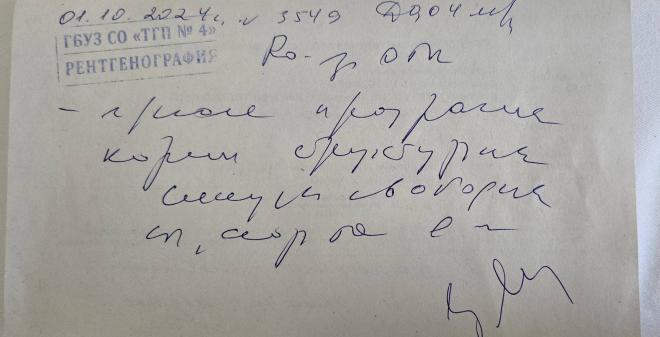 01.10.2024г. № 3549 Д 0,04 мзв
ГБУЗ СО «ТГП № 4»
РЕНТГЕНОГРАФИЯ
Ro-гр ОГК
- легкие прозрачные
корни структурные
синусы свободные